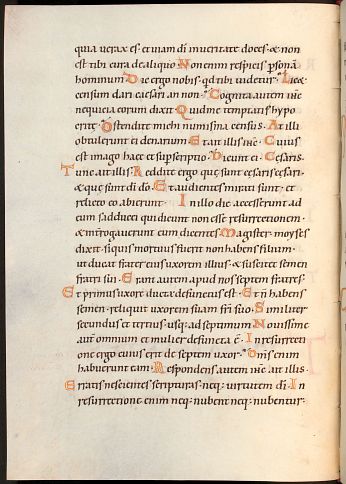 quia verax es· et viam dī in veritate doces· & non
est tibi cura de aliquo· Non enim respicis p̱sonā
hominum· Dic ergo nobis· qd tibi videtur· Licet
censum dari cæsari an non· Cognita autem ihc
nequicia eorum dixit· Quid me temptatis hypo
critę· Ostendite michi numisma census· At illi
obtulerunt ei denarium· Et ait illis ihc· Cuius
est imago haec et supscriptio· Dicunt ei· Cęsaris·
Tunc ait illis· Reddite ergo quę sunt cęsaris cęsari·
& quę sunt dī dō· Et audientes mirati sunt· et
relicto eo abierunt· In illo die accesserunt ad
eum sadducei qui dicunt non esse resurrectionem·
& interrogaverunt eum dicentes· Magister· moyses
dixit· si quis mortuus fuerit non habens filium·
ut ducat frater eius uxorem illius· & suscitet semen
fratri sui· Erant autem apud nos septem fratres·
Et primus uxore ducta defunctus est· Et ñ habens
semen· reliquit uxorem suam frī suo· Similiter
secundus et tertius· usq; ad septimum· Novissime
aut̄ omnium et mulier defuncta ē· In resurrecti
one ergo cuius erit de septem uxor· Om̄s enim
habuerunt eam· Respondens autem ihc ait illis·
Erratis nescientes scripturas· neq; virtutem dī· In
resurrectione enim neq; nubent neq; nubentur·